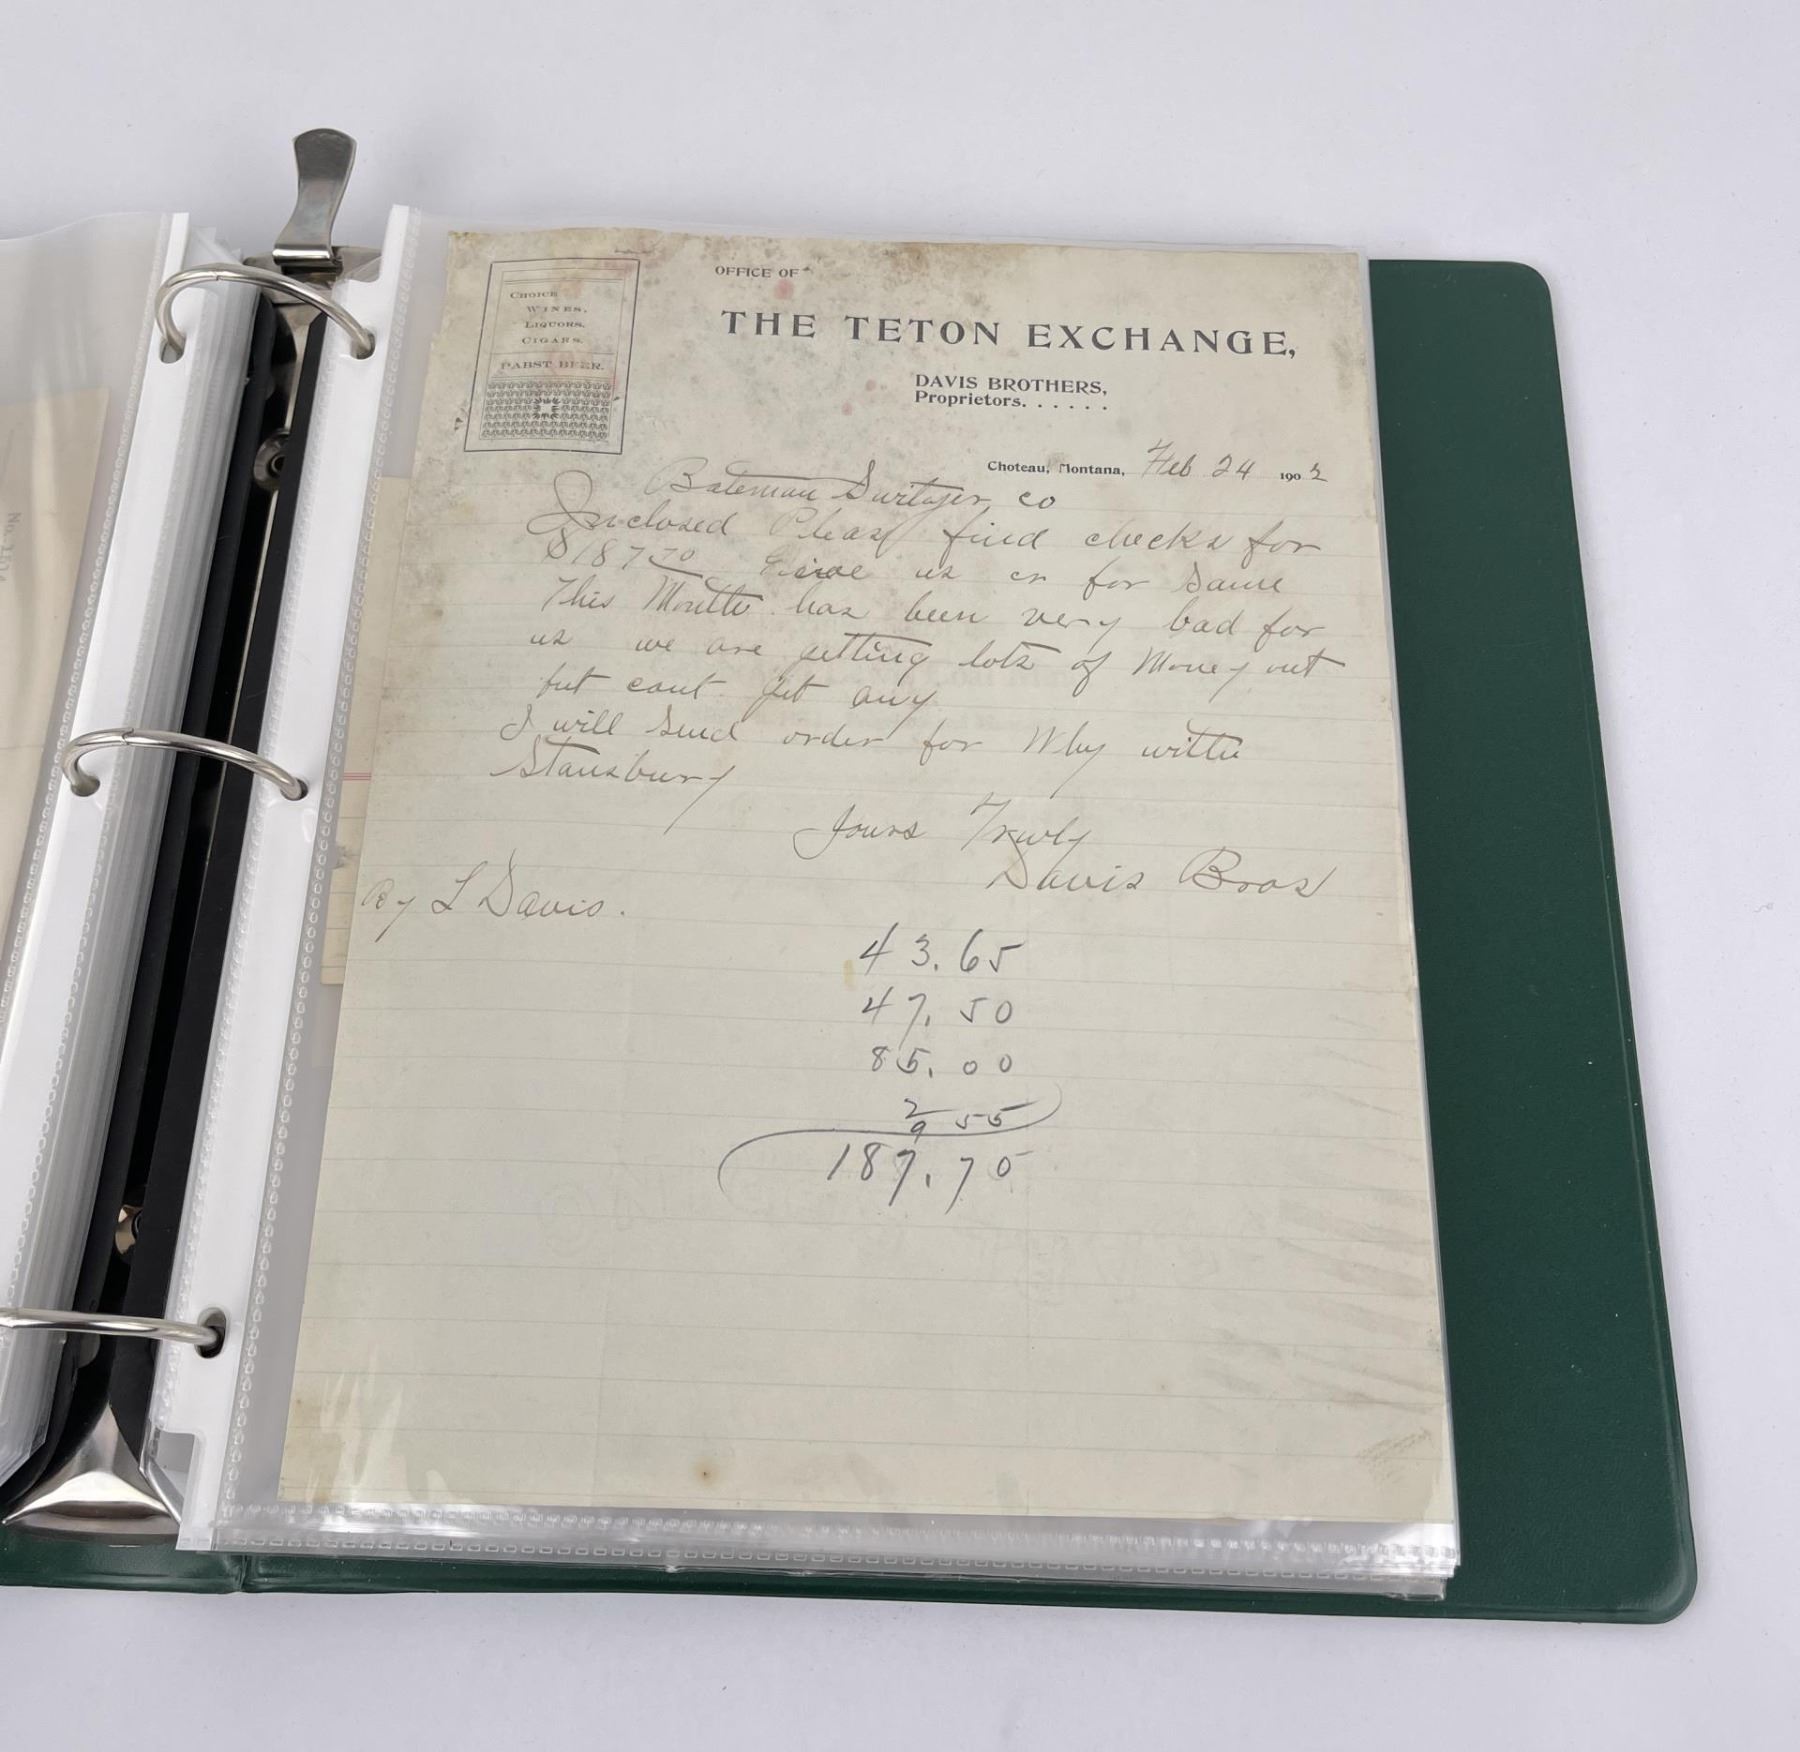 OFFICE OF
THE TETON EXCHANGE,
DAVIS BROTHERS,
Proprietors. . . . . .
CHOICE
WINES,
LIQUORS,
CIGARS.
PABST BEER.
Choteau, Montana, Feb 24 1902
Bateman Switzer co
Inclosed Please find checks for
$187 70 Give us cr for same
This Month has been very bad for
us we are getting lots of Money out
but cant get any
I will send order for Why with
Stansbury
Yours Truly
Davis Bros
By L Davis.
43.65
47.50
85.00
55
187.70